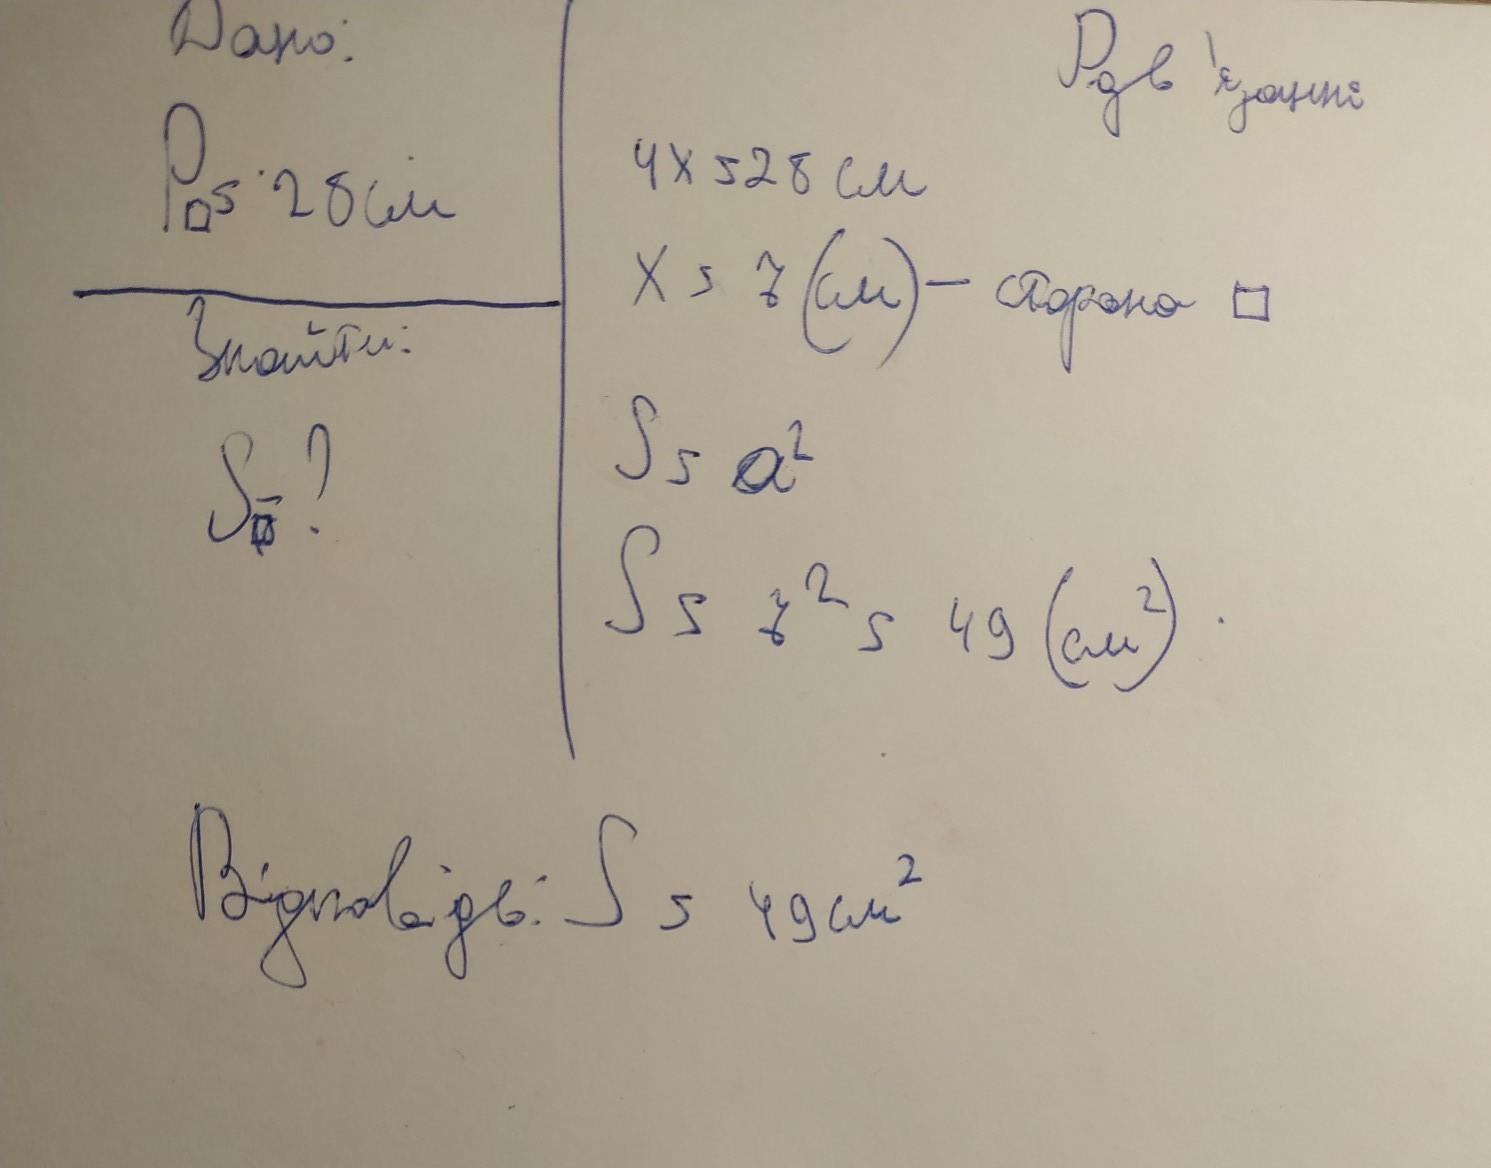 Дано:
P□ = 28 см
Знайти:
S□ - ?
Розв'язання
4x = 28 см
x = 7 (см) - сторона □
S = a²
S = 7² = 49 (см²).
Відповідь: S = 49 см²